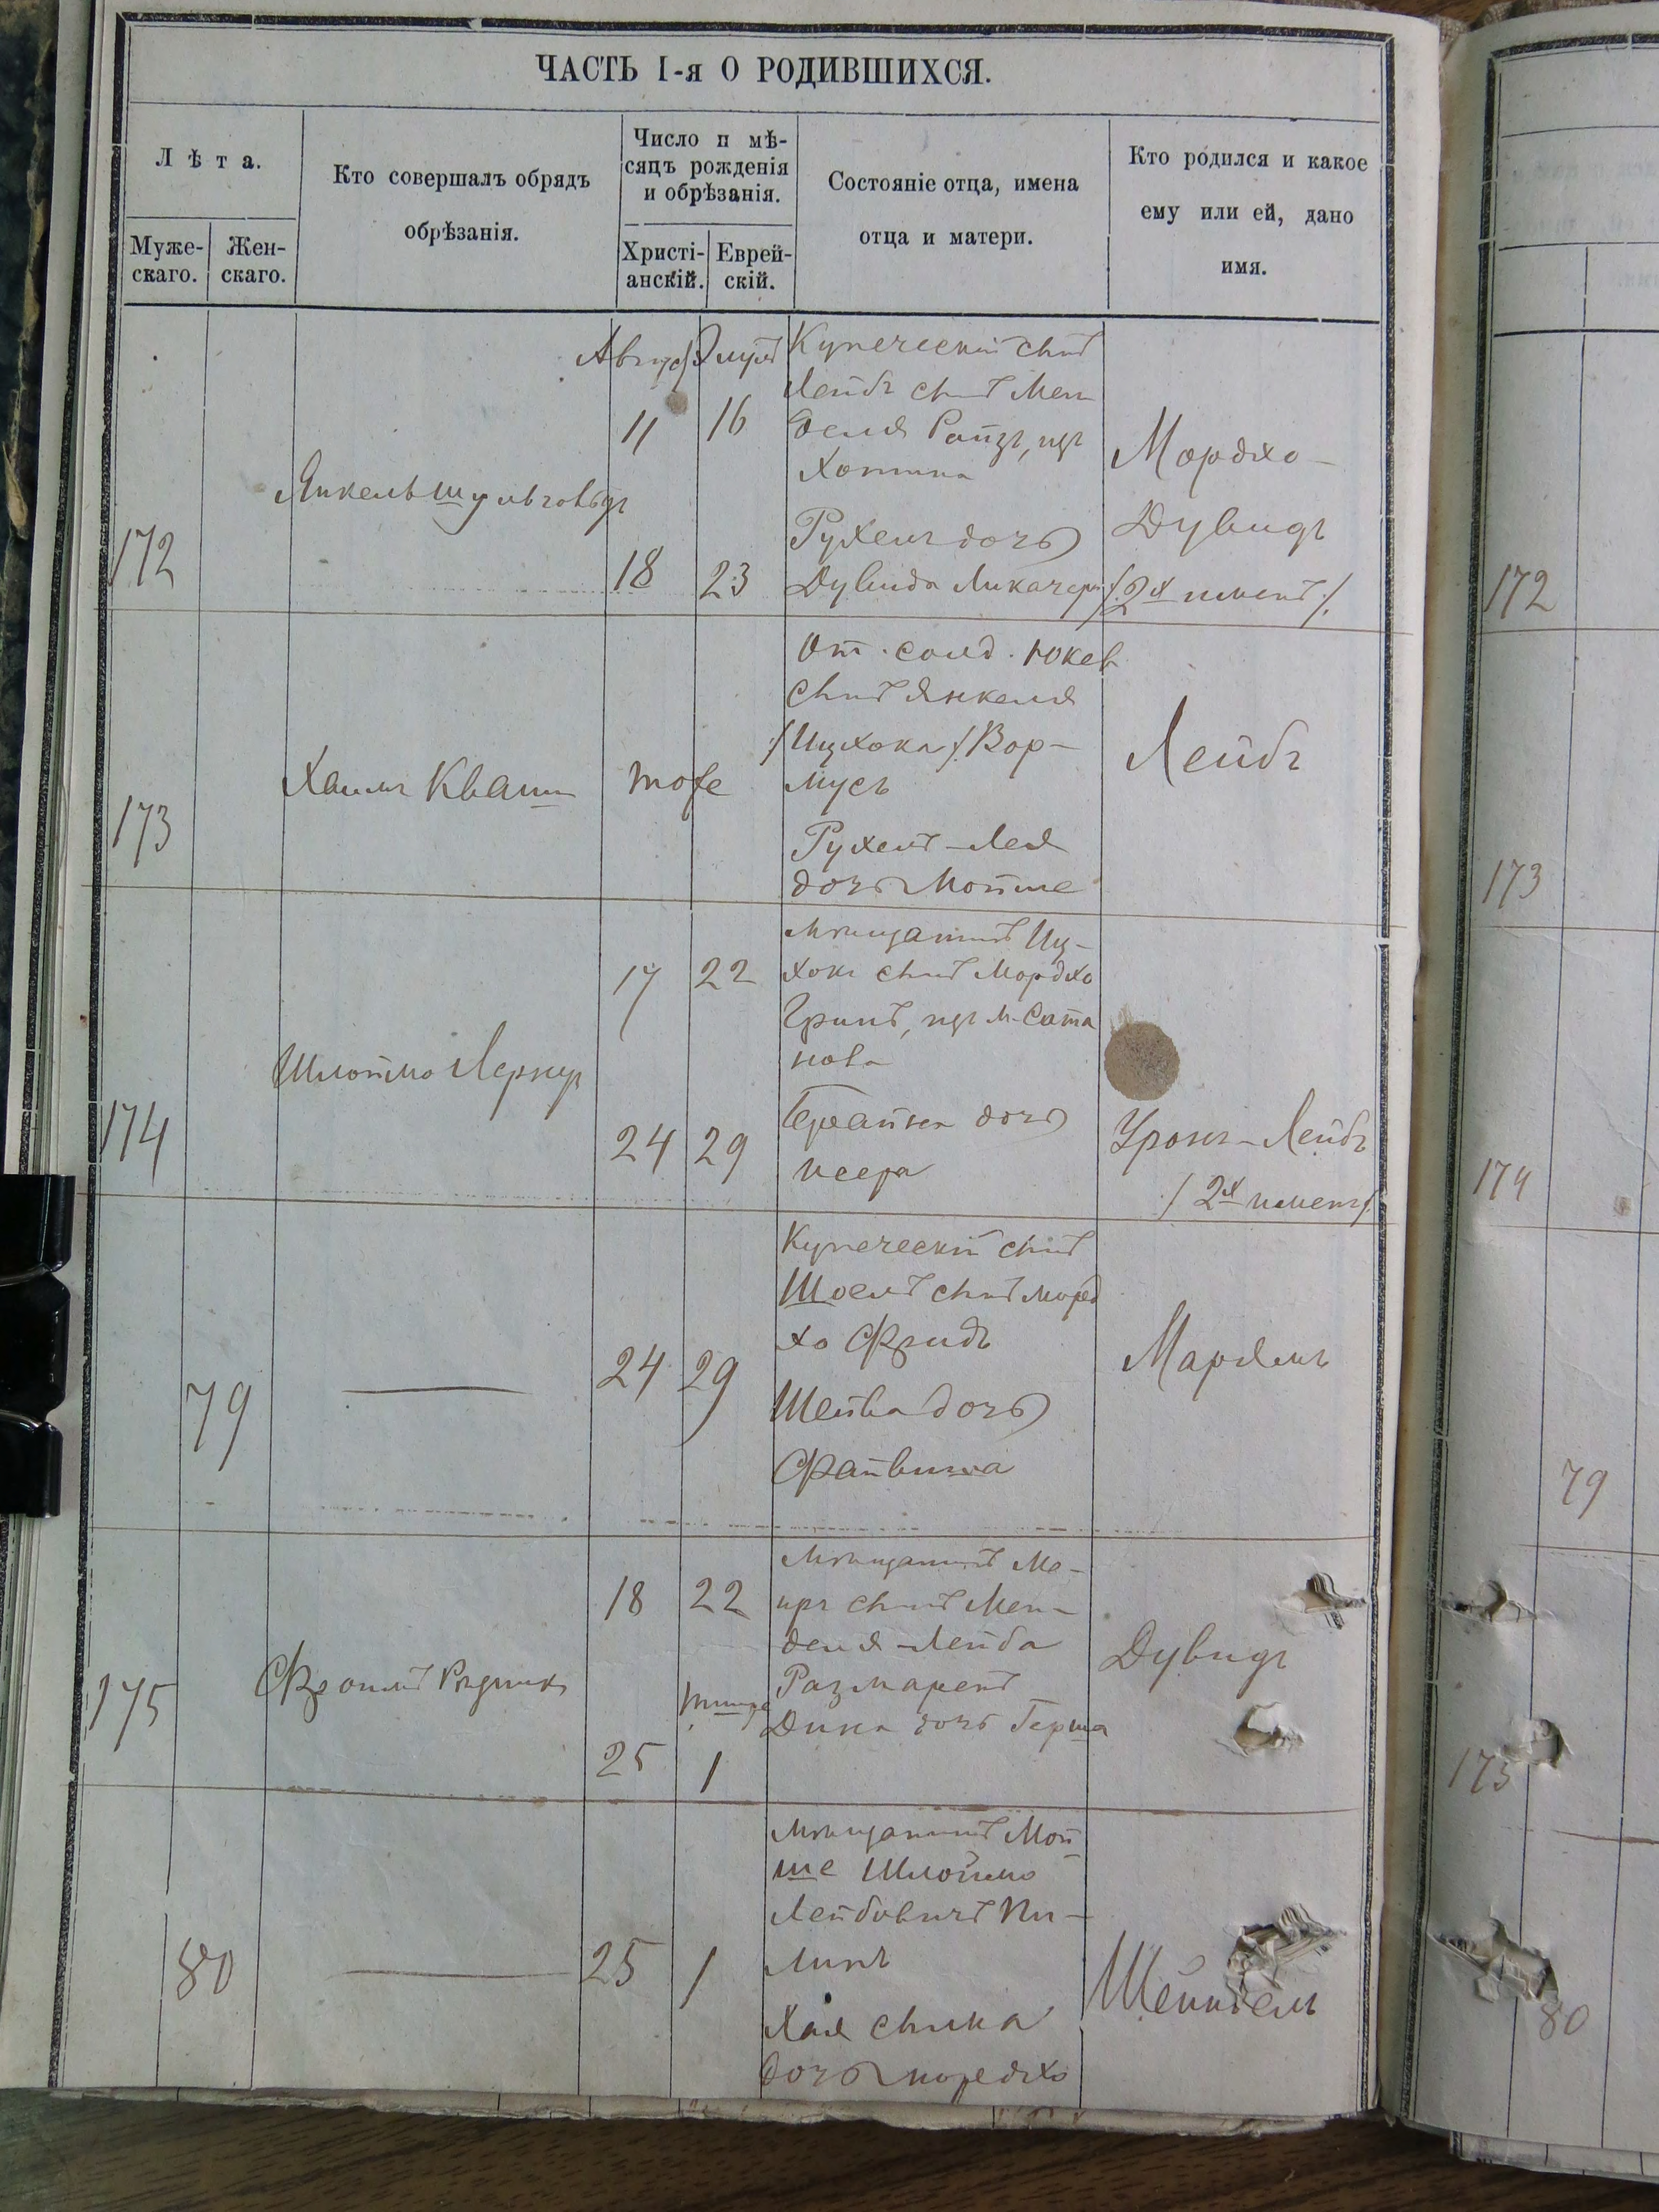 ЧАСТЬ I-я О РОДИВШИХСЯ.
Лѣта.
Муже-
скаго.
Жен-
скаго.
Кто совершалъ обрядъ
обрѣзанія.
Число и мѣ-
сяцъ рожденія
и обрѣзанія.
Христі-
анскій.
Еврей-
скій.
Состояніе отца, имена
отца и матери.
Кто родился и какое
ему или ей, дано
имя.
172
Янкель
Август
11
18
Элулъ
16
23
Купеческій сынъ
Лейбъ сынъ Мен
деля Райзъ, изъ
Хотина
Рухель дочь
Дувида
Мордхо-
Дувидъ
/2х именъ/
172
173
Хаимъ Кваша
тоже
От. солд.
сынъ Янкеля
/Ицхока/ Вор-
мусъ
Рухель-Лея
дочь Мойше
Лейбъ
173
174
Шлоймо Лернеръ
17
24
22
29
Мѣщанинъ Иц-
хокъ сынъ Мордхо
Гринъ, изъ м. Сата
нова
дочь
Исера
Уронъ-Лейбъ
/2х именъ/
174
79
24
29
Купеческій сынъ
Шоель сынъ Морд
хо Фридъ
Шейва дочь
Файвиша
Марямъ
79
175
Фроимъ Рудникъ
18
25
22
Тишре
1
Мѣщанинъ Ме-
иръ сынъ Мен-
деля-Лейба
Размаренъ
Дина дочь Герша
Дувидъ
175
80
25
1
Мѣщанинъ Мой
ше Шлоймо
Лейбовичъ Пи-
линъ
Хая
дочь Мордхо
Шейндель
80